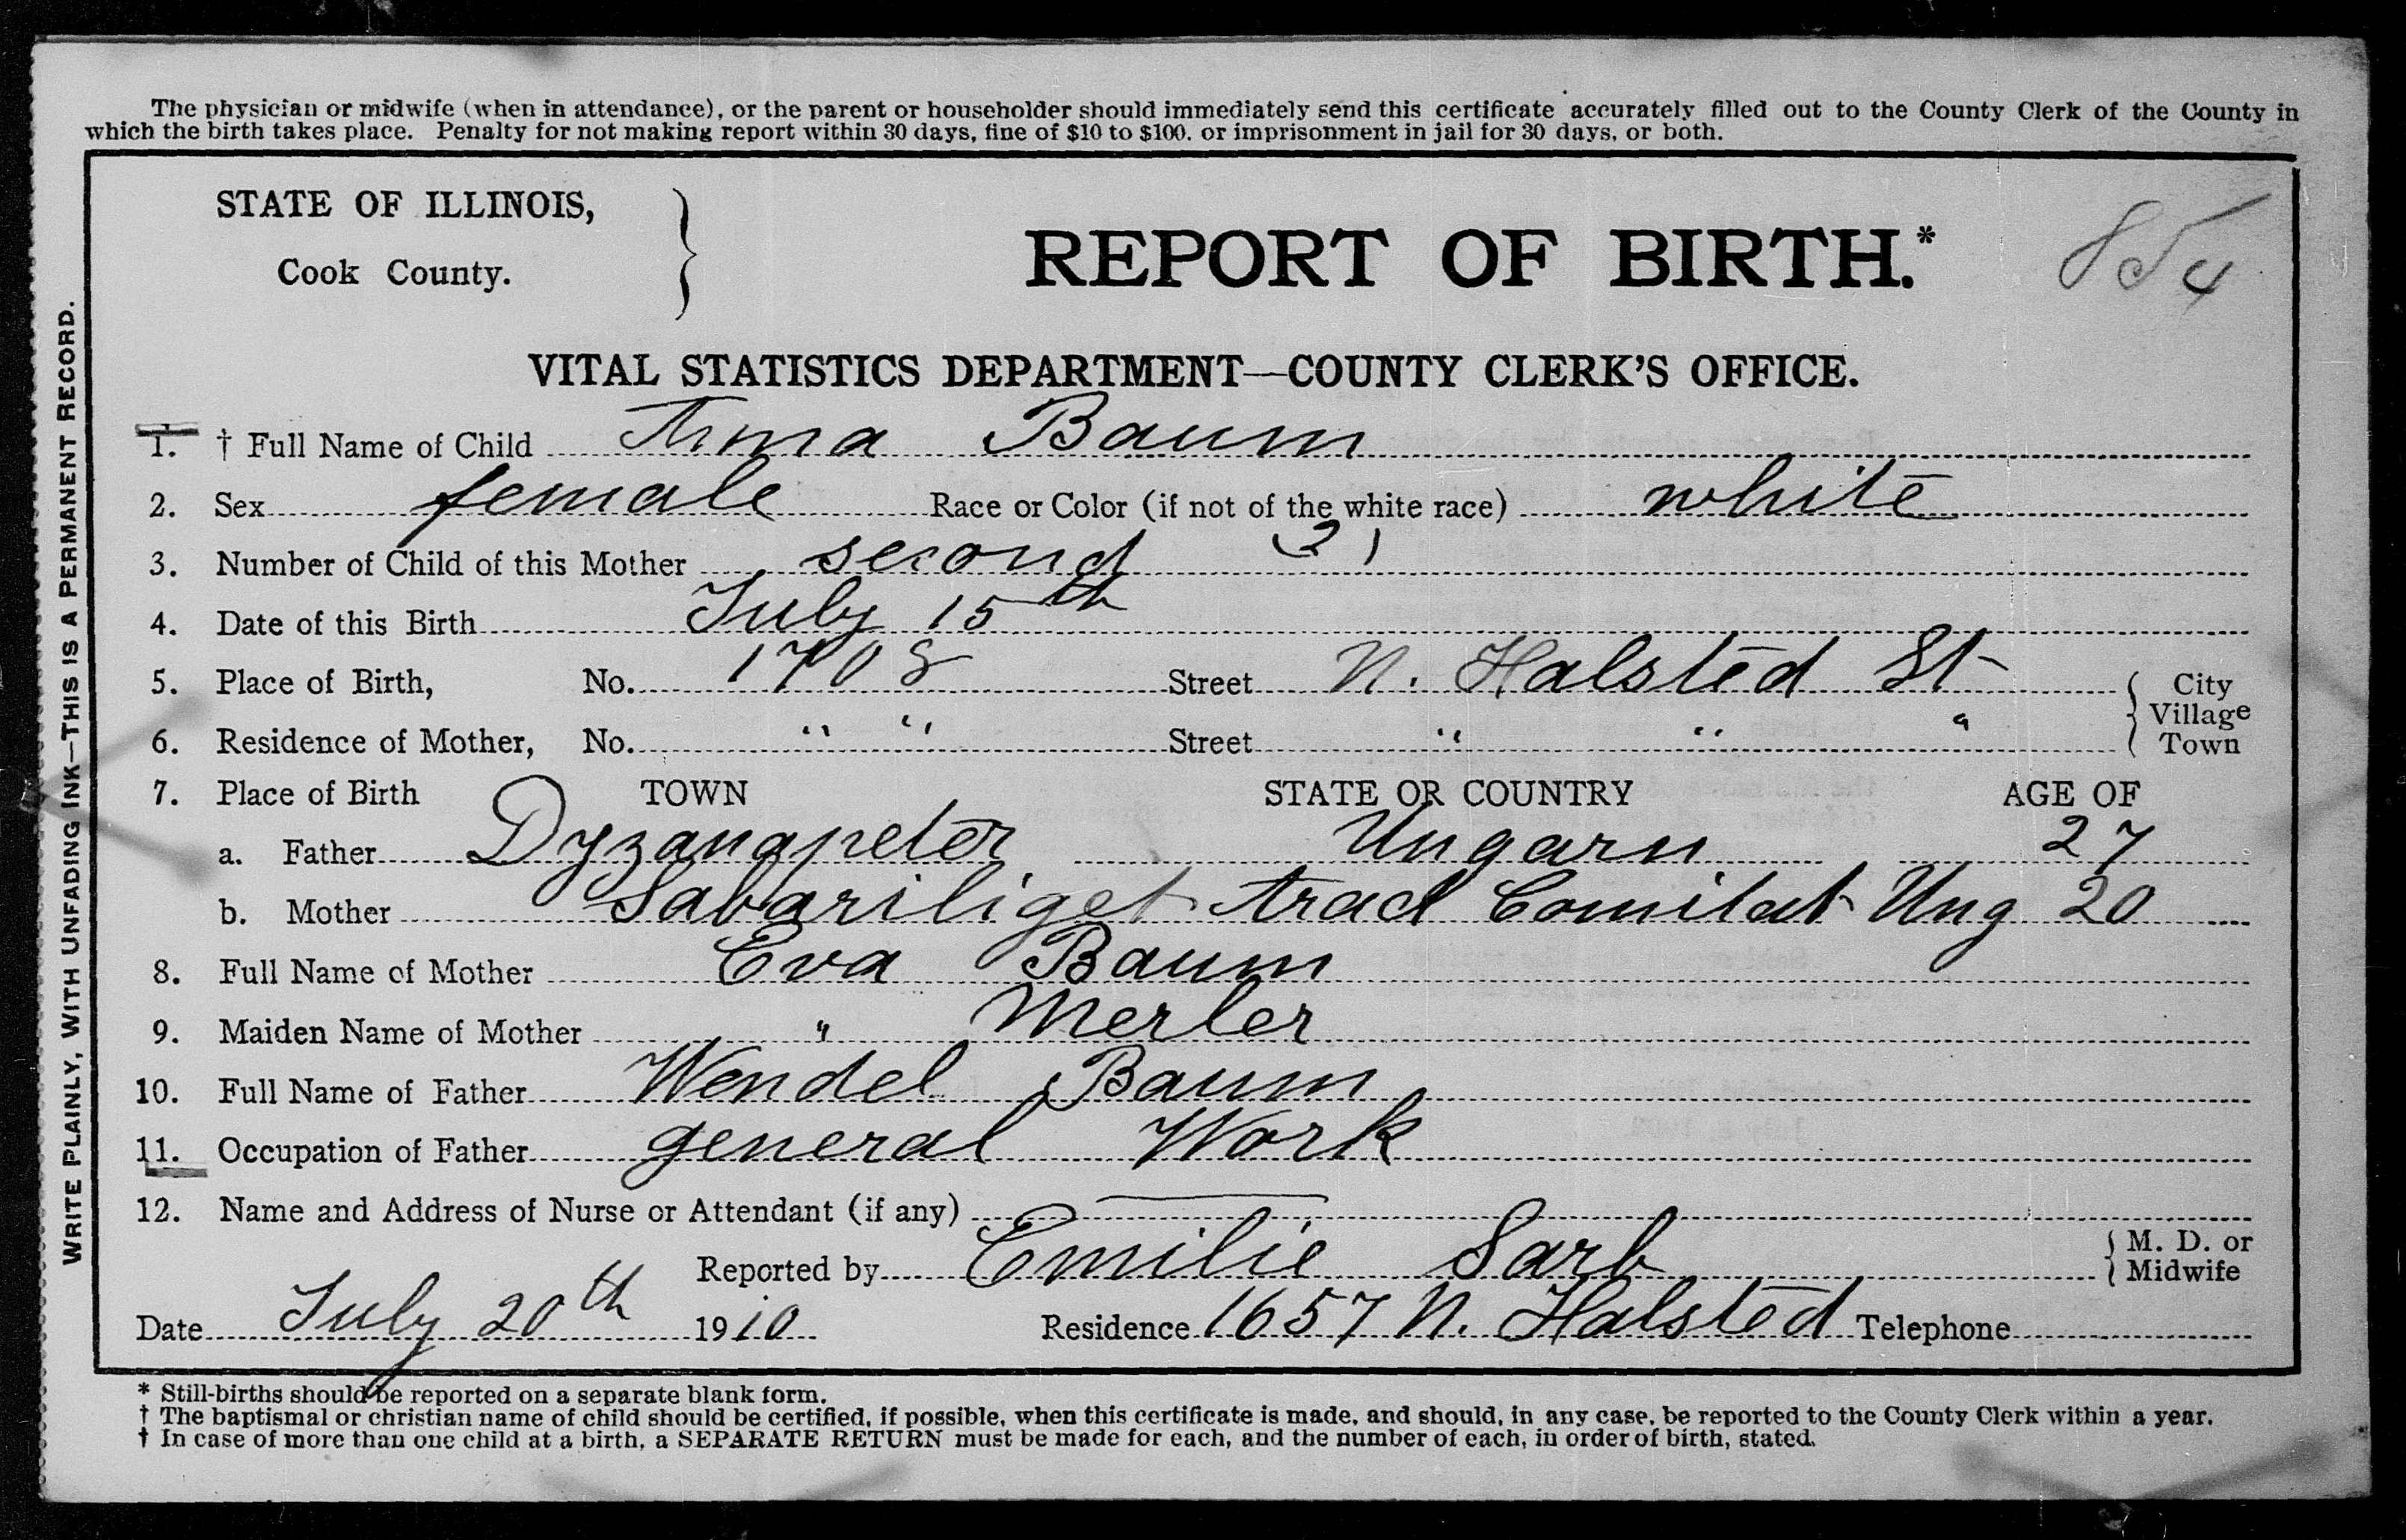 The physician or midwife (when in attendance), or the parent or householder should immediately send this certificate accurately filled out to the County Clerk of the County in
which the birth takes place. Penalty for not making report within 30 days, fine of $10 to $100. or imprisonment in jail for 30 days, or both.
WRITE PLAINLY, WITH UNFADING INK—THIS IS A PERMANENT RECORD.
STATE OF ILLINOIS,
Cook County.
REPORT OF BIRTH.*
854
VITAL STATISTICS DEPARTMENT—COUNTY CLERK'S OFFICE.
1. † Full Name of Child Anna Baum
2. Sex female Race or Color (if not of the white race) white
3. Number of Child of this Mother second (2)
4. Date of this Birth July 15th
5. Place of Birth, No. 1708 Street N. Halsted St City
Village
6. Residence of Mother, No. " " Street " " " Town
7. Place of Birth TOWN STATE OR COUNTRY AGE OF
a. Father Ungarn 27
b. Mother Arad Comitat Ung 20
8. Full Name of Mother Eva Baum
9. Maiden Name of Mother " Merler
10. Full Name of Father Wendel Baum
11. Occupation of Father general Work
12. Name and Address of Nurse or Attendant (if any)
Reported by Emilie Sarb M. D. or
Midwife
Date July 20th 1910 Residence 1657 N. Halsted Telephone
* Still-births should be reported on a separate blank form.
† The baptismal or christian name of child should be certified, if possible, when this certificate is made, and should, in any case, be reported to the County Clerk within a year.
† In case of more than one child at a birth, a SEPARATE RETURN must be made for each, and the number of each, in order of birth, stated.